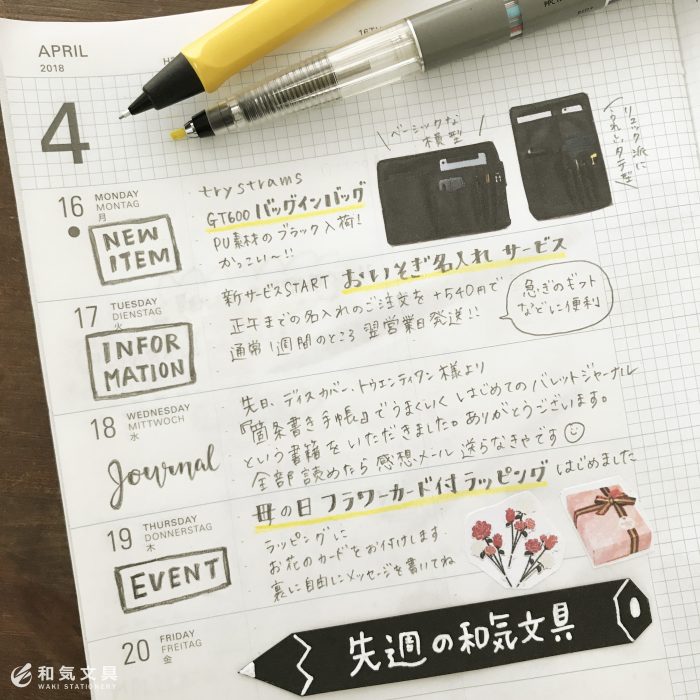 APRIL
2018
4
16 MONDAY
MONTAG
月
NEW
ITEM
trystrams
GT600 バッグインバッグ
PU素材のブラック入荷!
かっこい〜!!
ベーシックな
横型
リュック派に
うれしいタテ型
17 TUESDAY
DIENSTAG
火
INFOR
MATION
新サービスSTART おいそぎ名入れ サービス
正午までの名入れのご注文を +540円で
通常1週間のところ 翌営業日発送!!
急ぎのギフト
などに便利
18 WEDNESDAY
MITTWOCH
水
Journal
先日、ディスカバー・トゥエンティワン様より
『箇条書き手帳』でうまくいく はじめてのバレットジャーナル
という書籍をいただきました。ありがとうございます。
全部読めたら感想メール送らなきゃです
19 THURSDAY
DONNERSTAG
木
EVENT
母の日 フラワーカード付ラッピング はじめました
ラッピングに
お花のカードをお付けします
裏に自由にメッセージを書いてね
20 FRIDAY
FREITAG
金
先週の和気文具
和気文具
WAKI STATIONERY